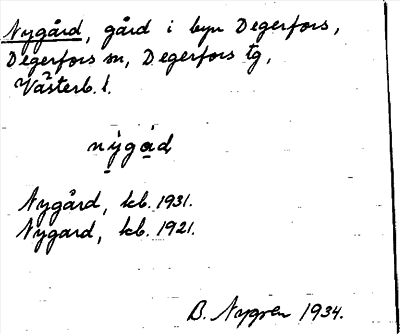 Nygård, gård i byn Degerfors,
Degerfors sn, Degerfors tg,
Västerb. l.
nỳgạ́d
Nygård, kb. 1931.
Nygard, kb. 1921.
B. Nygren 1934.